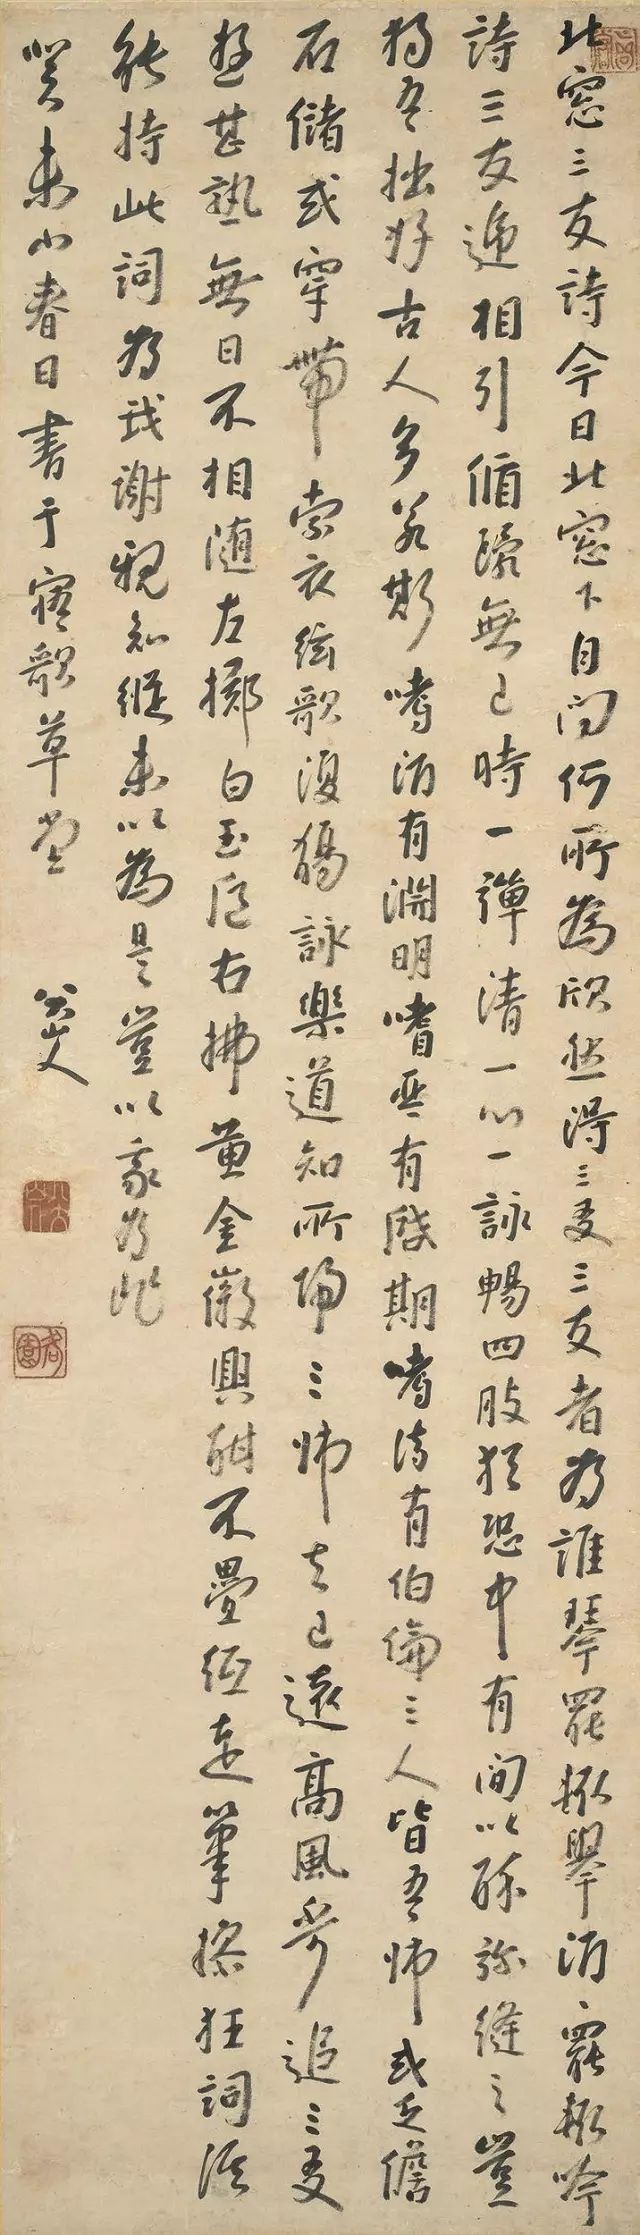 北窓三友詩今日北窓下自問何所為欣然得三友三友者為誰琴罷輙舉酒酒罷輙吟
詩三友遞相引循環無已時一彈清一心一詠暢四肢猶恐中有間以酔弥縫之豈
獨吾拙好古人多若斯嗜酒有淵明嗜琴有啓期嗜詩有伯倫三人皆吾師或乏儋
石儲或穿帶索衣絃歌復觴詠樂道知所歸三師去已遠高風追三友
遊甚熟無日不相隨左擲白玉巵右拂黄金徽興酣不疊紙走筆操狂詞誰
能持此詞為我謝親知縱未以為是豈以我為非
癸未小春日書于寤歌草堂 八大山人